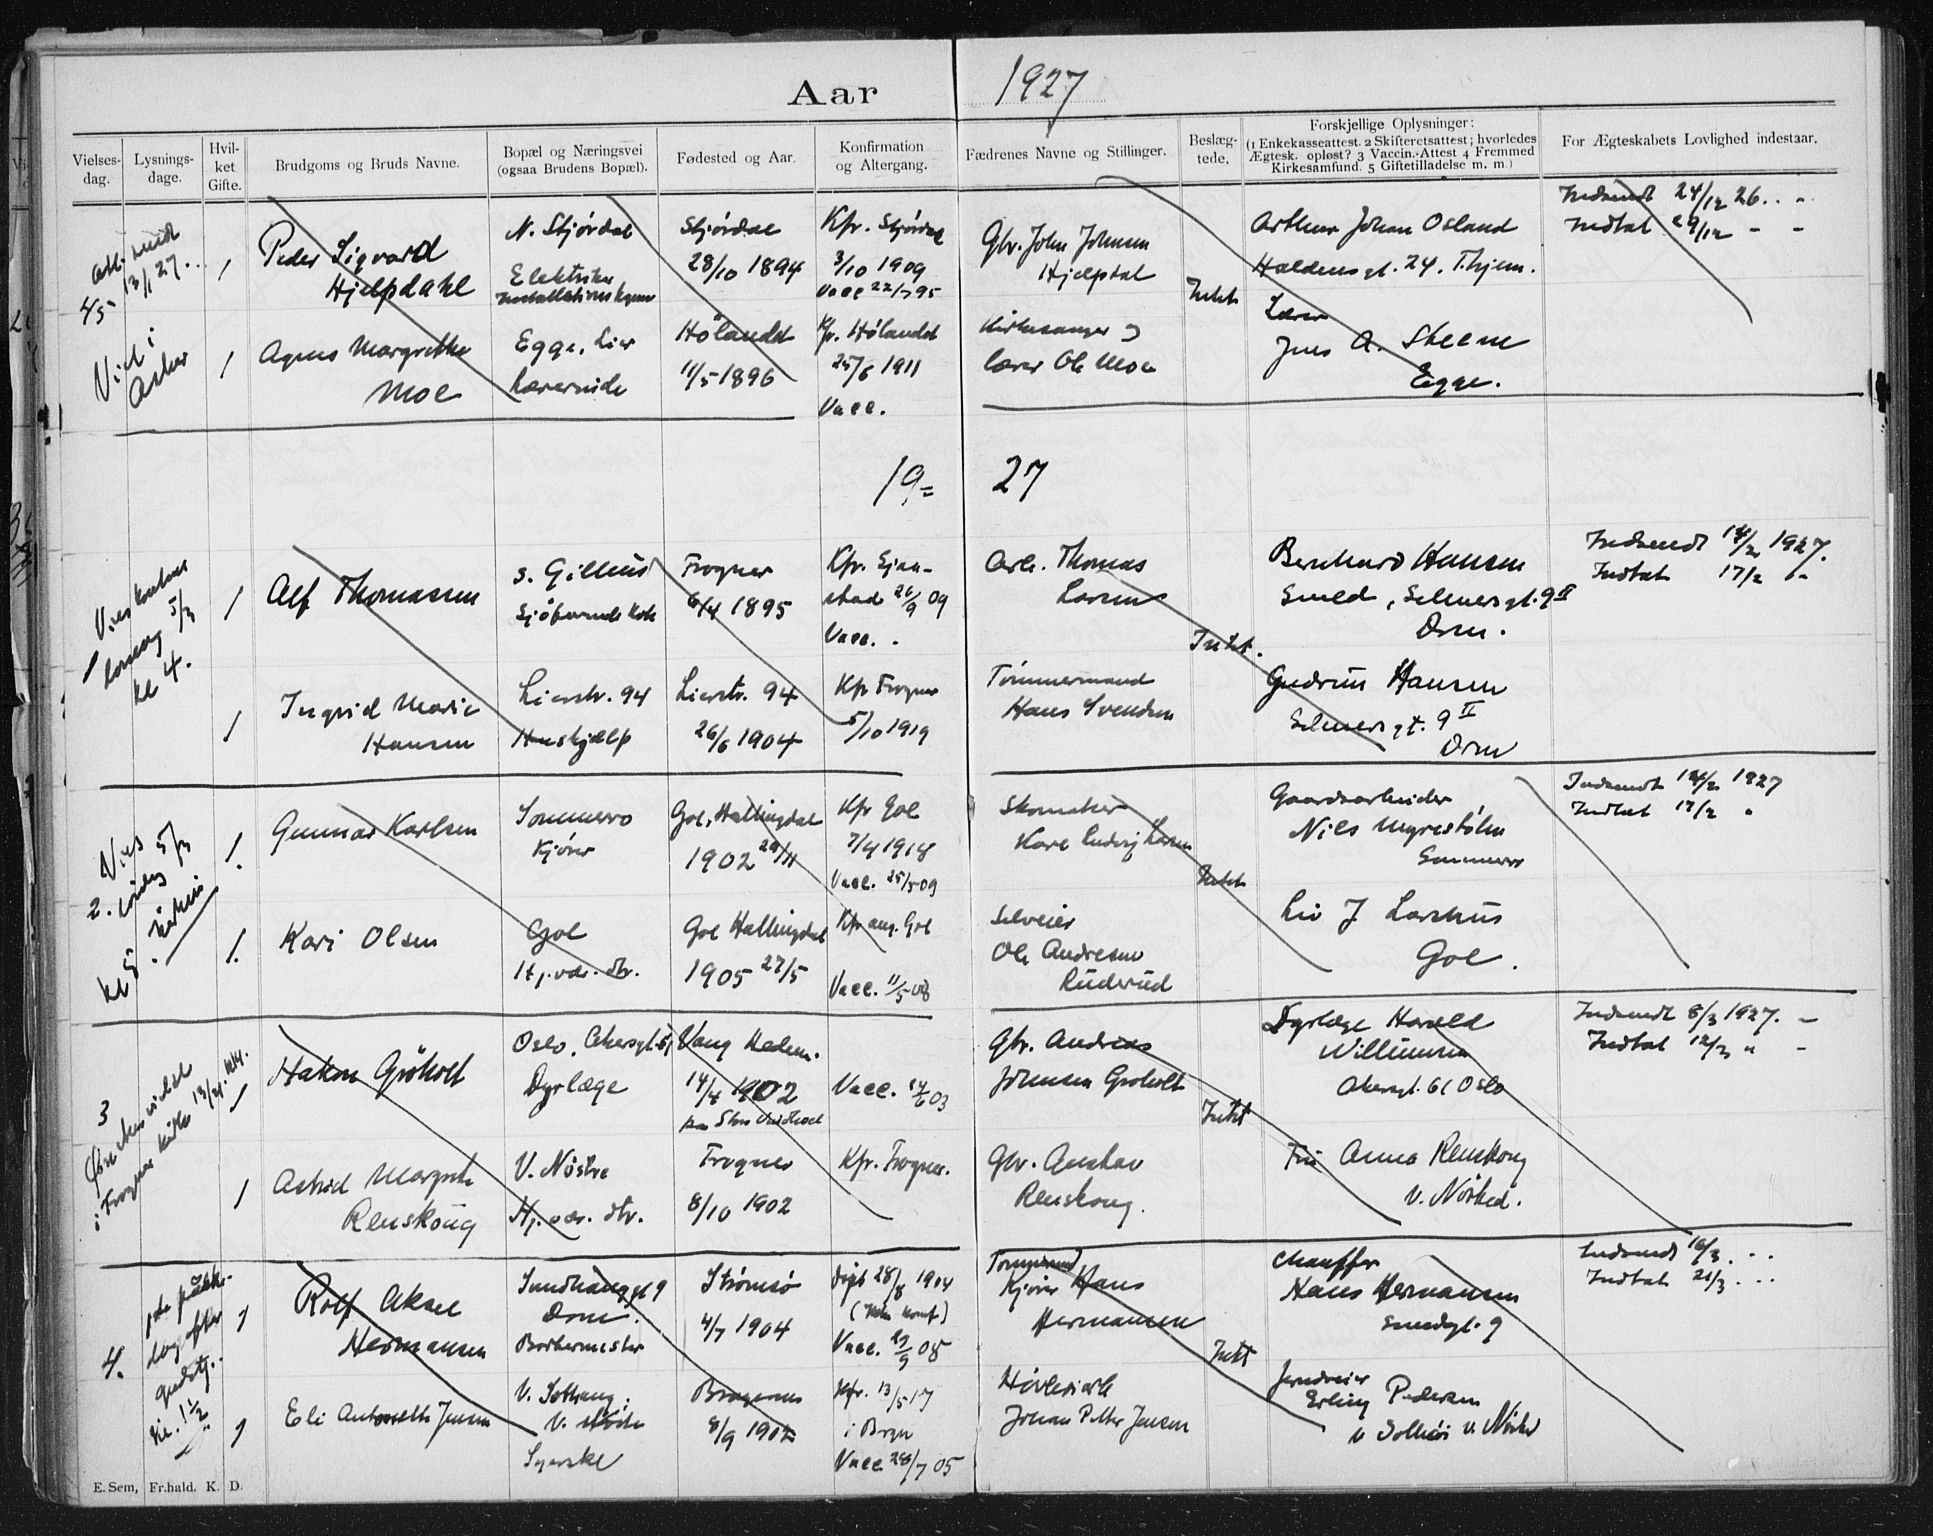 Aar 1927
Vielses-dag.
Lysnings-dage.
Hvil-ket Gifte.
Brudgoms og Bruds Navne.
Bopæl og Næringsvei (ogsaa Brudens Bopæl).
Fødested og Aar.
Konfirmation og Altergang.
Fædrenes Navne og Stillinger.
Beslæg-tede.
Forskjellige Oplysninger: (1 Enkekasseattest. 2 Skifteretsattest; hvorledes Ægtesk. opløst? 3 Vaccin.-Attest 4 Fremmed Kirkesamfund. 5 Giftetilladelse m. m.)
For Ægteskabets Lovlighed indestaar.
45
13/1 27.
Viet i
Asker
1
Peder Sigvard
Hjelpdahl
N. Stjørdal
Elektriker
Stjørdal
28/10 1894
Kfr. Stjørdal
3/10 1909
Vacc 22/7 95
Gbr. John Johnsen
Hjelpdal
Intet
Arthur Johan Osland
Haldensgt. 24. T.hjem.
Indsendt 24/12 26
Indtat 29/12 - -
1
Agnes Margrethe
Moe
Egge, Lier
Lærerinde
Hølandet
11/5 1896
Kfr. Hølandet
25/6 1911
Vacc.
Kirkesanger og
lærer Ole Moe
Lærer
Jens A. Steene
Egge.
19= 27
1
lørdag 5/3
kl 4.
1
Alf Thomassen
s. Gilhus
Frogner
6/4 1895
Kfr.
26/9 09
Vacc.
Arb. Thomas
Larsen
Intet.
Bernhard Hansen
Smed, Selmersgt. 9 II
Drm.
Indsendt 14/2 1927.
Indtat 17/2 "
1
Ingrid Marie
Hansen
Lierstr. 94
Hushjælp
Lierstr. 94
26/6 1904
Kfr Frogner
5/10 1919
Tømmermand
Hans Svendsen
Gudrun Hansen
Selmersgt. 9 II
Drm
2.
Vies
lørdag 5/3
kl 5.
1.
Gunnar Karlsen
Sommero
Kjører
Gol, Hallingdal
1902 29/11
Kfr Gol
7/4 1918
Vacc. 25/5 09
Skomaker
Karl Ludvig Larsen
Intet
Gaardsarbeider
Nils Myrestølen
Sommero
Indsendt 14/2 1927
Indtat 17/2 "
1.
Kari Olsen
Gol
Hj. vær. dtr.
Gol Hallingdal
1905 27/5
Kfr ang. Gol
Vacc. 11/5 08
Selveier
Ole Andresen
Ruderud
Liv J Larshus
Gol.
3
i Frogner kirke 13/4
1
Håkon Gróholt
Oslo, Akersgt. 61
Dyrlæge
Vang Hedem.
14/4 1902
Vacc. 14/6 03
Gbr. Andreas
Johnsen Groholt
Intet
Dyrlæge Harald
Willumsen
Akersgt. 61 Oslo
Indsendt 8/3 1927. -
Indtat 12/3 " -
1
Astrid Margrete
Renskoug
V. Nøste
Hj. vær. dtr.
Frogner
8/10 1902
Kfr. Frogner.
Gbr. Gustav
Renskoug.
Fru Anna Renskoug
v. Nøsted.
4.
1ste påske-
dag efter
gudstj.
1
Rolf Aksel
Hermansen
Drm.
Barbermester
Strømsø
4/7 1904
Døpt 28/8 1904
Vacc. 17/9 08
Kjører Hans
Hermansen
Intet
Chauffør
Hans Hermansen
Indsendt 16/3
Indtat 21/3
1
Eli Antonette Jensen
V. Solhaug.
V. Nøste
Syerske
Bragernes
8/9 1902
Kfr. 13/5 17
i Bragn
Vacc 28/7 05
Høvleriarb
Johan Petter Jensen
Erling Pedersen
E. Sem, Fr.hald. K. D.